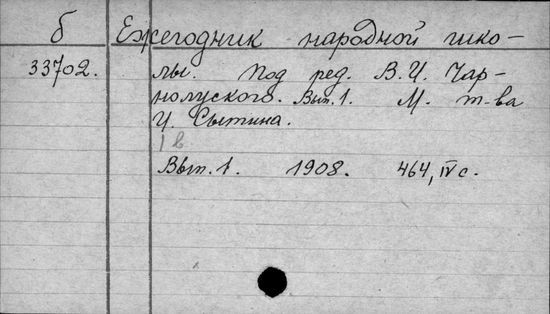 б Ежегодник народной шко-
33702. лы. Под ред. В.И. Чар-
нолуского. Вып. 1. М. т-ва
И. Сытина.
1 в
Вып. 1. 1908. 464, IV с.